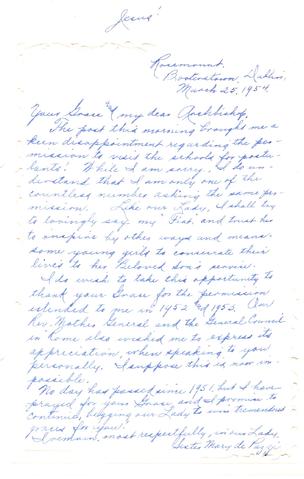 Jesus!
Rosemount,
Booterstown, Dublin,
March 25, 1954
Your Grace & my dear Archbishop,
The post this morning brought me a
keen disappointment regarding the per-
mission to visit the schools for postu-
lants. While I am sorry, I do un-
derstand that I am only one of the
countless number asking the same per-
mission. Like our Lady, I shall try
to lovingly say my "Fiat" and trust her
to inspire by other ways and means
some young girls to consecrate their
lives to her Beloved Son's service.
I do wish to take this opportunity to
thank your Grace for the permission
extended to me in 1952 & 1953. Our
Rev. Mother General and the General Council
in Rome also wished me to express its
appreciation, when speaking to you
personally. I suppose this is now im-
possible.
No day has passed since 1951, but I have
prayed for your Grace, and I promise to
continue, begging our Lady to win tremendous
graces for you.
I remain, most respectfully, in our Lady,
Sister Mary de Pazzi